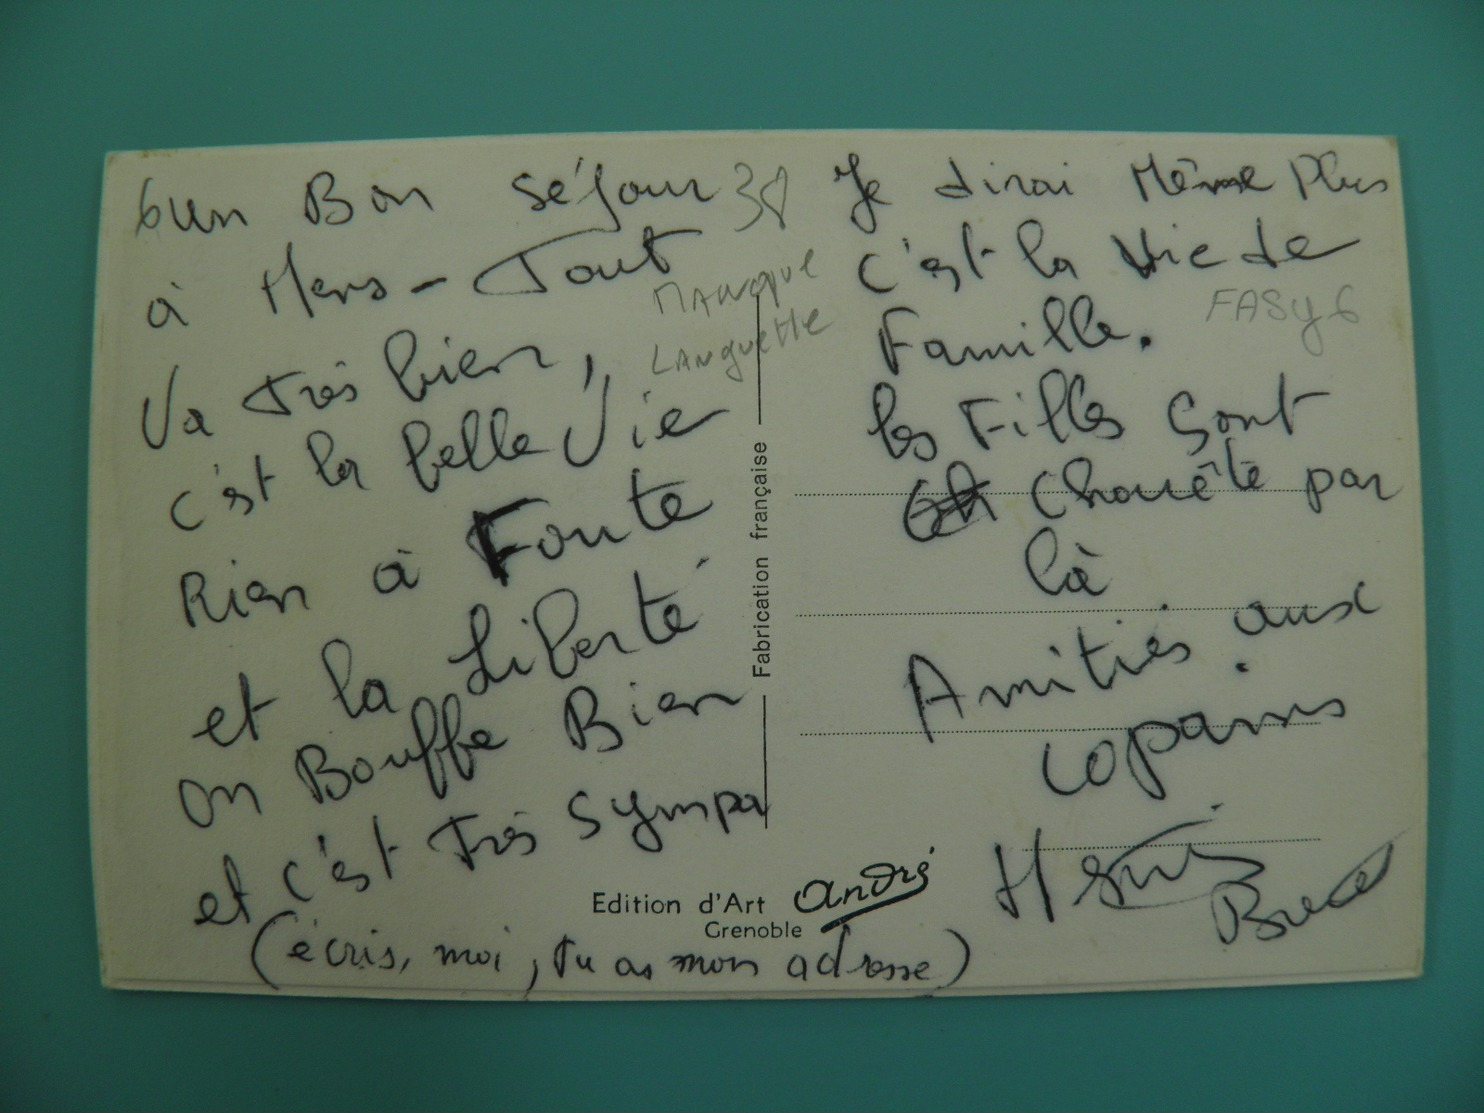 bun Bon séjour
à Mens - Tout
Va Très bien,
c'est la belle Vie
Rien à Foute
et la Liberté
on Bouffe Bien
et c'est Très sympa
(écris, moi, tu as mon adresse)
38
MANque
LANguette
Fabrication française
Edition d'Art André
Grenoble
Je dirai Même Plus
c'est la Vie de
Famille.
FASY6
les Filles Sont
Chouête par
là
Amitiés aux
copains
Henri